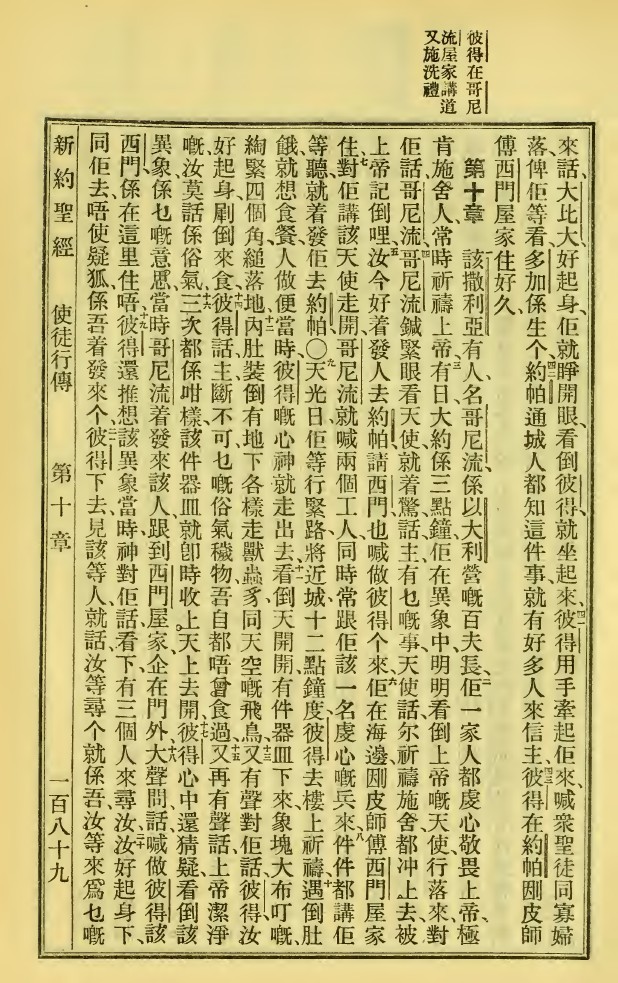 彼得在哥尼
流屋家講道
又施洗禮
來話、大比大、好起身、佢就睜開眼、看倒彼得、就坐起來、四一彼得用手牽起佢來、喊衆聖徒同寡婦
落俾佢等看、多加係生个、四二約帕通城人都知這件事、就有好多人來信主、四三彼得在約帕𠜱皮師
傅西門屋家住好久、
第十章 該撒利亞有人名哥尼流、係以大利營嘅百夫長、二佢一家人都虔心敬畏上帝、極
肯施舍人、常時祈禱上帝、三有日大約係三點鐘、佢在異象中、明明看倒上帝嘅天使行落來、對
佢話、哥尼流、四哥尼流鍼緊眼看天使、就着驚話、主、有乜嘅事、天使話、尔祈禱施舍都冲上去、被
上帝記倒哩、五汝今好着發人去約帕、請西門、也喊做彼得个來、六佢在海邊𠜱皮師傅西門屋家
住、七對佢講該天使走開、哥尼流就喊兩個工人、同時常跟佢該一名虔心嘅兵來、八件件都講佢
等聽、就着發佢去約帕、〇九天光日、佢等行緊路、將近城、十二點鐘度、彼得去樓上祈禱、十遇倒肚
餓、就想食餐、人做便當時、彼得嘅心神就走出去、十一看倒天開開、有件器皿下來、象塊大布、叮嘅、
綯緊四個角縋落地、十二內肚裝倒有地下各樣走獸、蟲豸、同天空嘅飛鳥、十三又有聲對佢話、彼得、汝
好起身、刷倒來食、十四彼得話、主、斷不可、乜嘅俗氣穢物、吾自都唔曾食過、十五又再有聲話、上帝潔淨
嘅、汝莫話係俗氣、十六三次都係咁樣、該件器皿就即時收上天上去開、十七彼得心中還猜疑看倒該
異象係乜嘅意思、當時哥尼流着發來該人、跟到西門屋家、企在門外、十八大聲問話、喊做彼得該
西門、係在這里住唔、十九彼得還推想該異象當時、神對佢話、看下有三個人來尋汝、二十汝好起身下、
同佢去、唔使疑狐、係吾着發來个、二一彼得下去見該等人、就話、汝等尋个、就係吾、汝等來爲乜嘅
新約聖經 使徒行傳 第十章 一百八十九